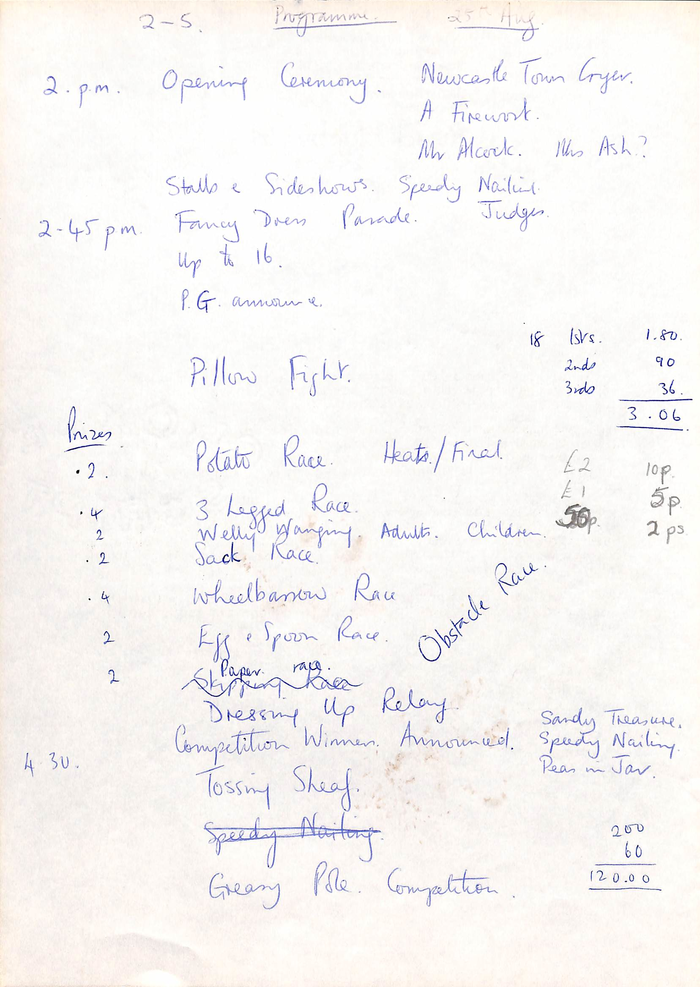 2-5. Programme. 25th Aug.
2. p.m. Opening Ceremony. Newcastle Town Cryer.
A Firework.
Mr Alcock. Mrs Ash?
Stalls & Sideshows. Speedy Nailing.
2-45 p.m. Fancy Dress Parade. Judges.
Up to 16.
P.G. announce.
18 1sts. 1.80.
2nds 90
3rds 36.
3.06
Pillow Fight.
Prizes
.2. Potato Race. Heats./Final.
£2 10p.
£1 5p.
50p. 2 ps
.4 3 Legged Race.
2 Welly Wanging. Adults. Children.
.2 Sack Race.
.4 Wheelbarrow Race
2 Egg & Spoon Race.
Obstacle Race.
Paper race.
2 Skipping Race
Dressing Up Relay
Competition Winners. Announced. Sandy Treasure.
Speedy Nailing.
Peas in Jar.
4 30. Tossing Sheaf.
Speedy Nailing.
200
60
120.00
Greasy Pole. Competition.